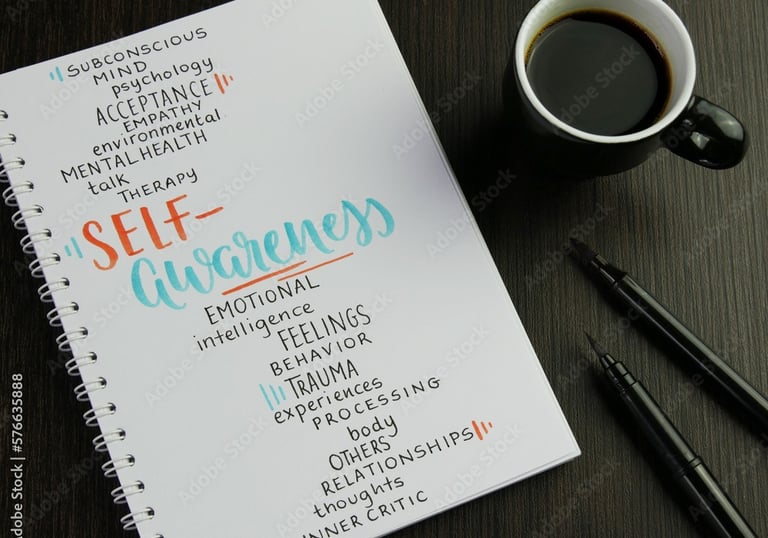 SUBCONSCIOUS
MIND
psychology
ACCEPTANCE
EMPATHY
environmental
MENTAL HEALTH
talk
THERAPY
SELF-
awareness
EMOTIONAL
intelligence
FEELINGS
BEHAVIOR
TRAUMA
experiences
PROCESSING
body
OTHERS
RELATIONSHIPS
thoughts
INNER CRITIC
Adobe Stock | #576635888
Adobe Stock